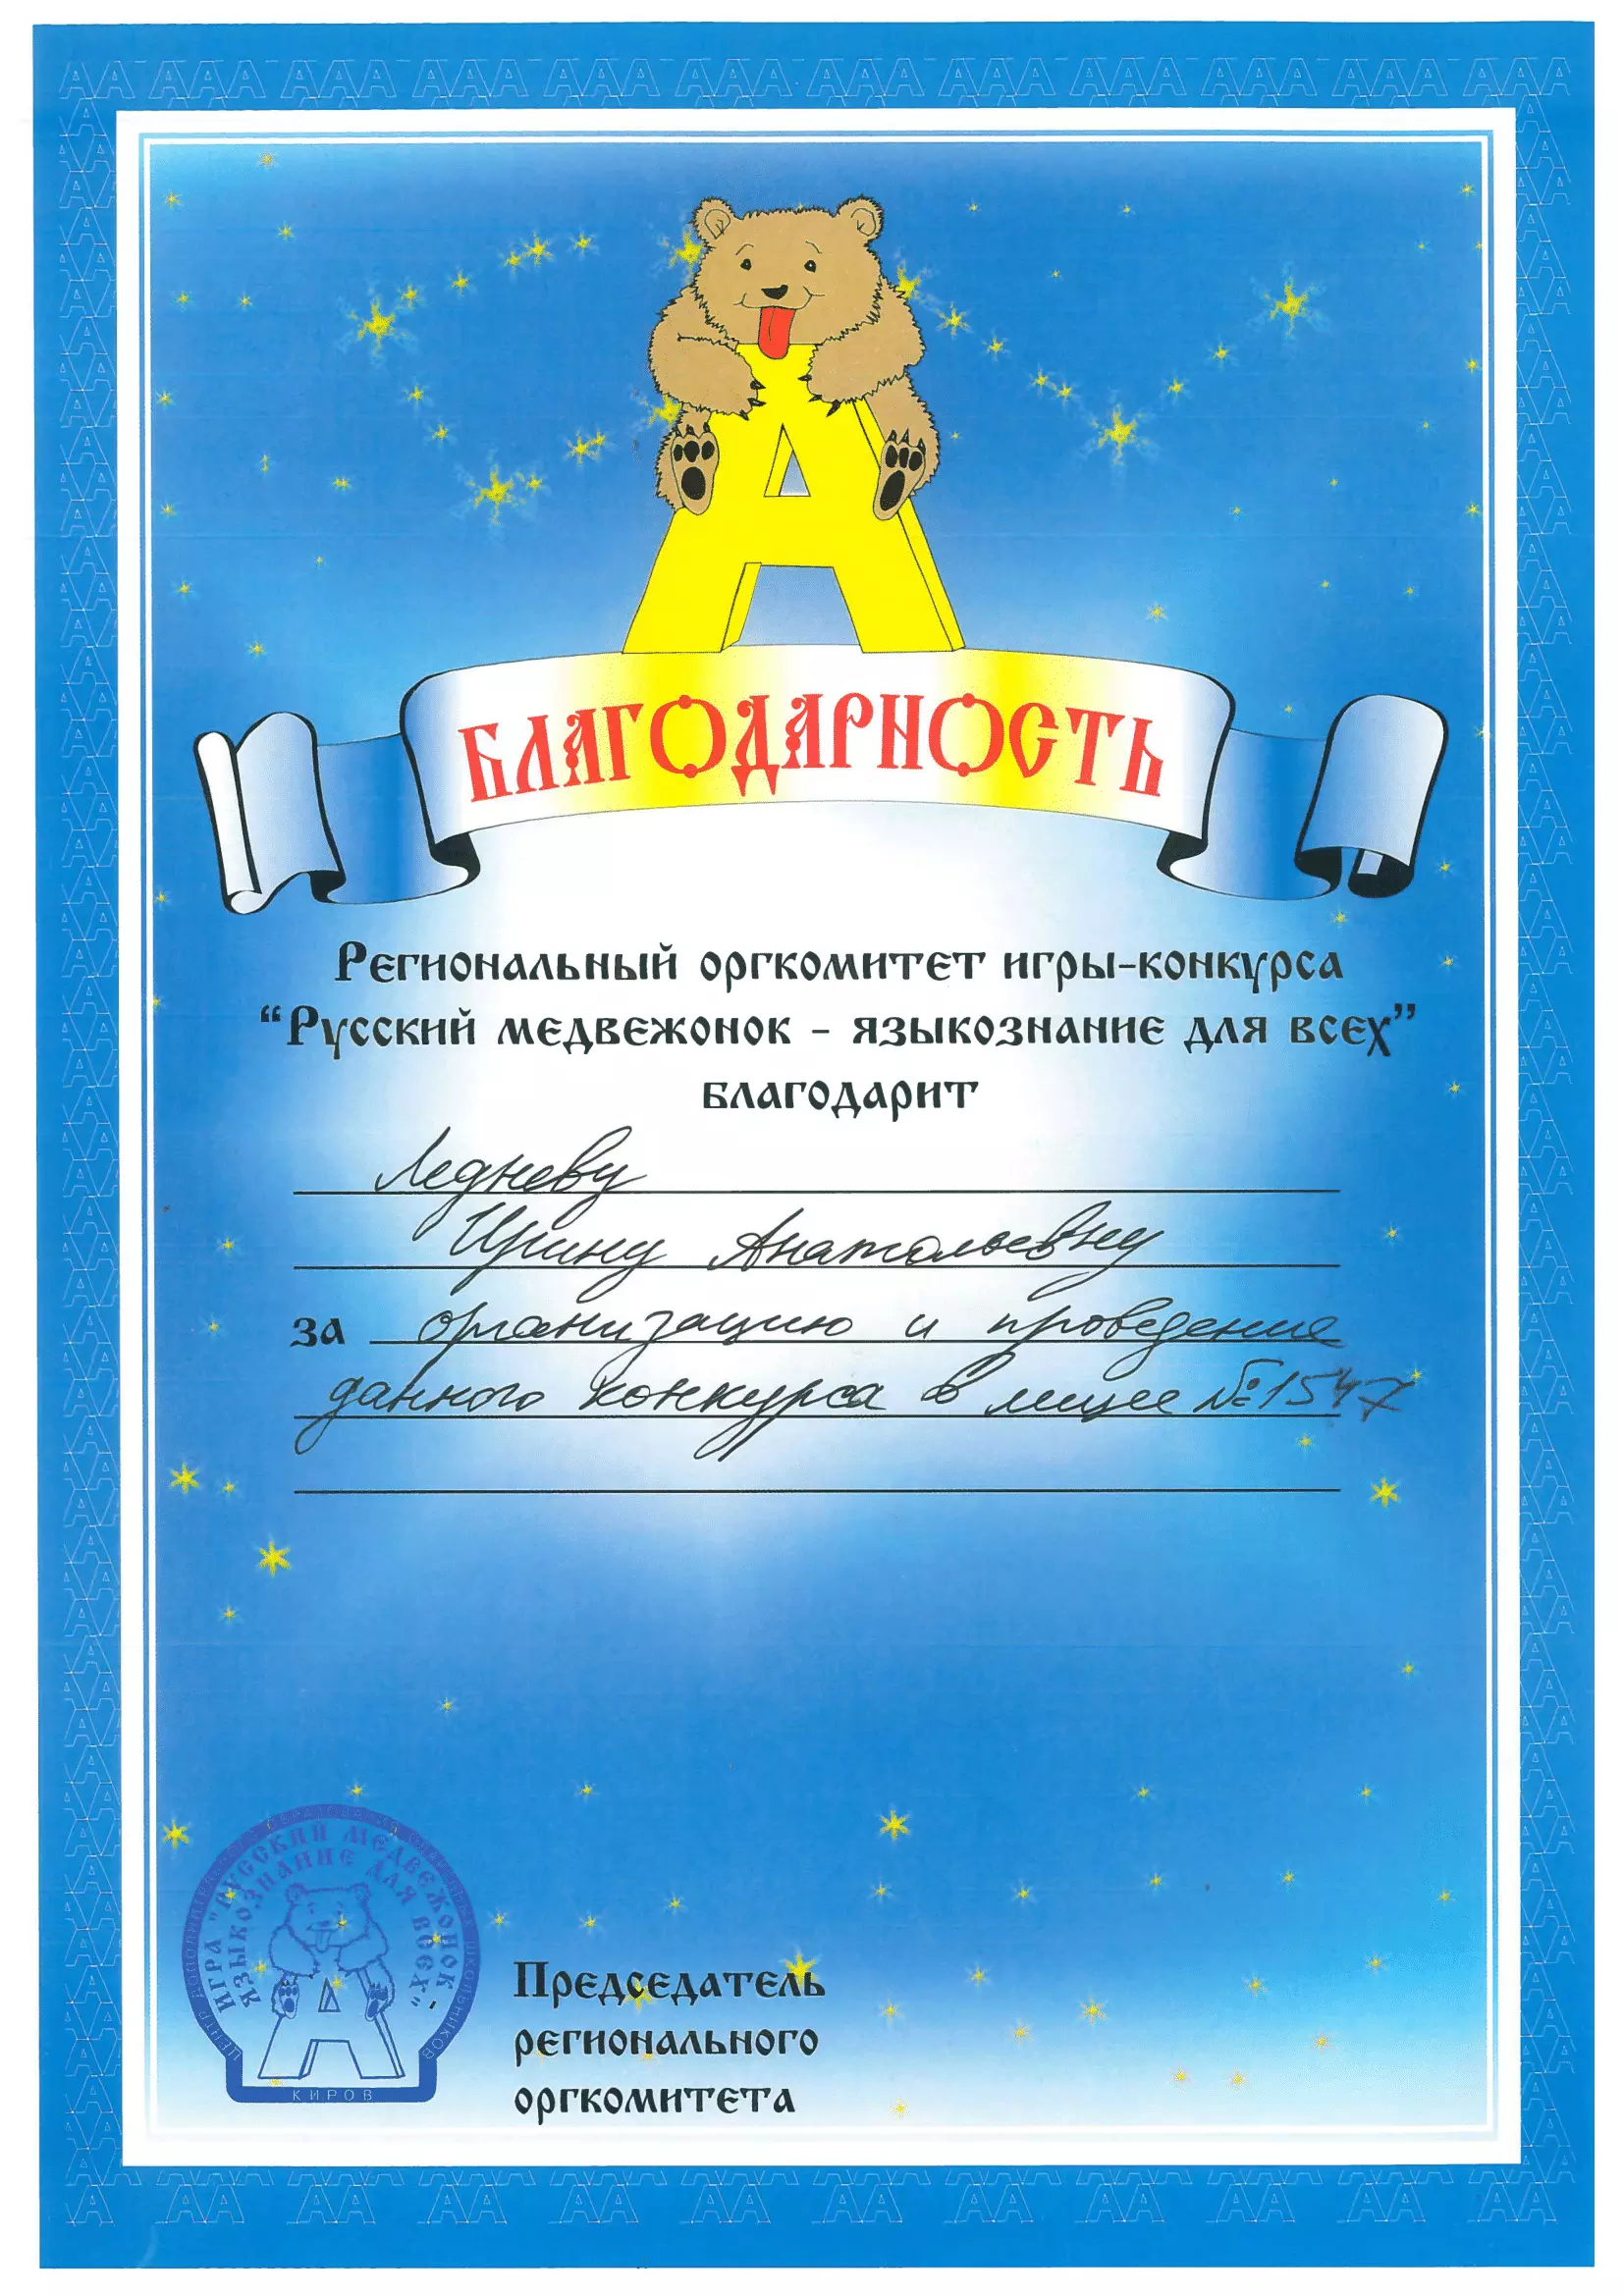 БЛАГОДАРНОСТЬ
Региональный оргкомитет игры-конкурса
“Русский медвежонок - языкознание для всех”
благодарит
Ледневу
Ирину Анатольевну
за организацию и проведение
данного конкурса в лицее № 1547
ИГРА "РУССКИЙ МЕДВЕЖОНОК -
ЯЗЫКОЗНАНИЕ ДЛЯ ВСЕХ"
КИРОВ
Председатель
регионального
оргкомитета